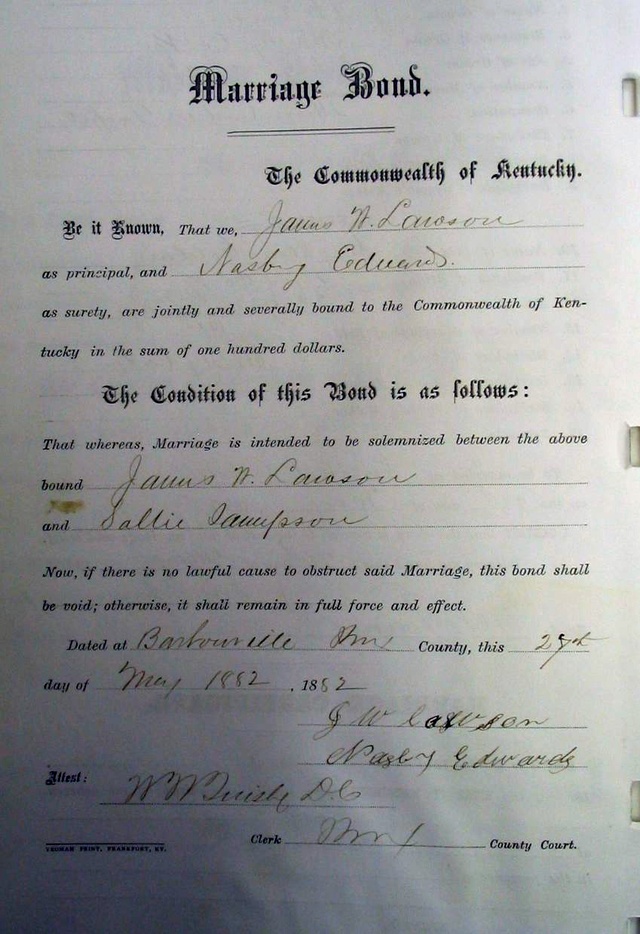 Marriage Bond.
The Commonwealth of Kentucky.
Be it Known, That we, James W. Lawson
as principal, and Nasby Edwards.
as surety, are jointly and severally bound to the Commonwealth of Ken-
tucky in the sum of one hundred dollars.
The Condition of this Bond is as follows:
That whereas, Marriage is intended to be solemnized between the above
bound James W. Lawson
and Sallie Sampson
Now, if there is no lawful cause to obstruct said Marriage, this bond shall
be void; otherwise, it shall remain in full force and effect.
Dated at Barbourville Knox County, this
day of May 1882, 1882
J W Lawson
Nasby Edwards
Attest:
D.C
Clerk Knox County Court.
YEOMAN PRINT, FRANKFORT, KY.